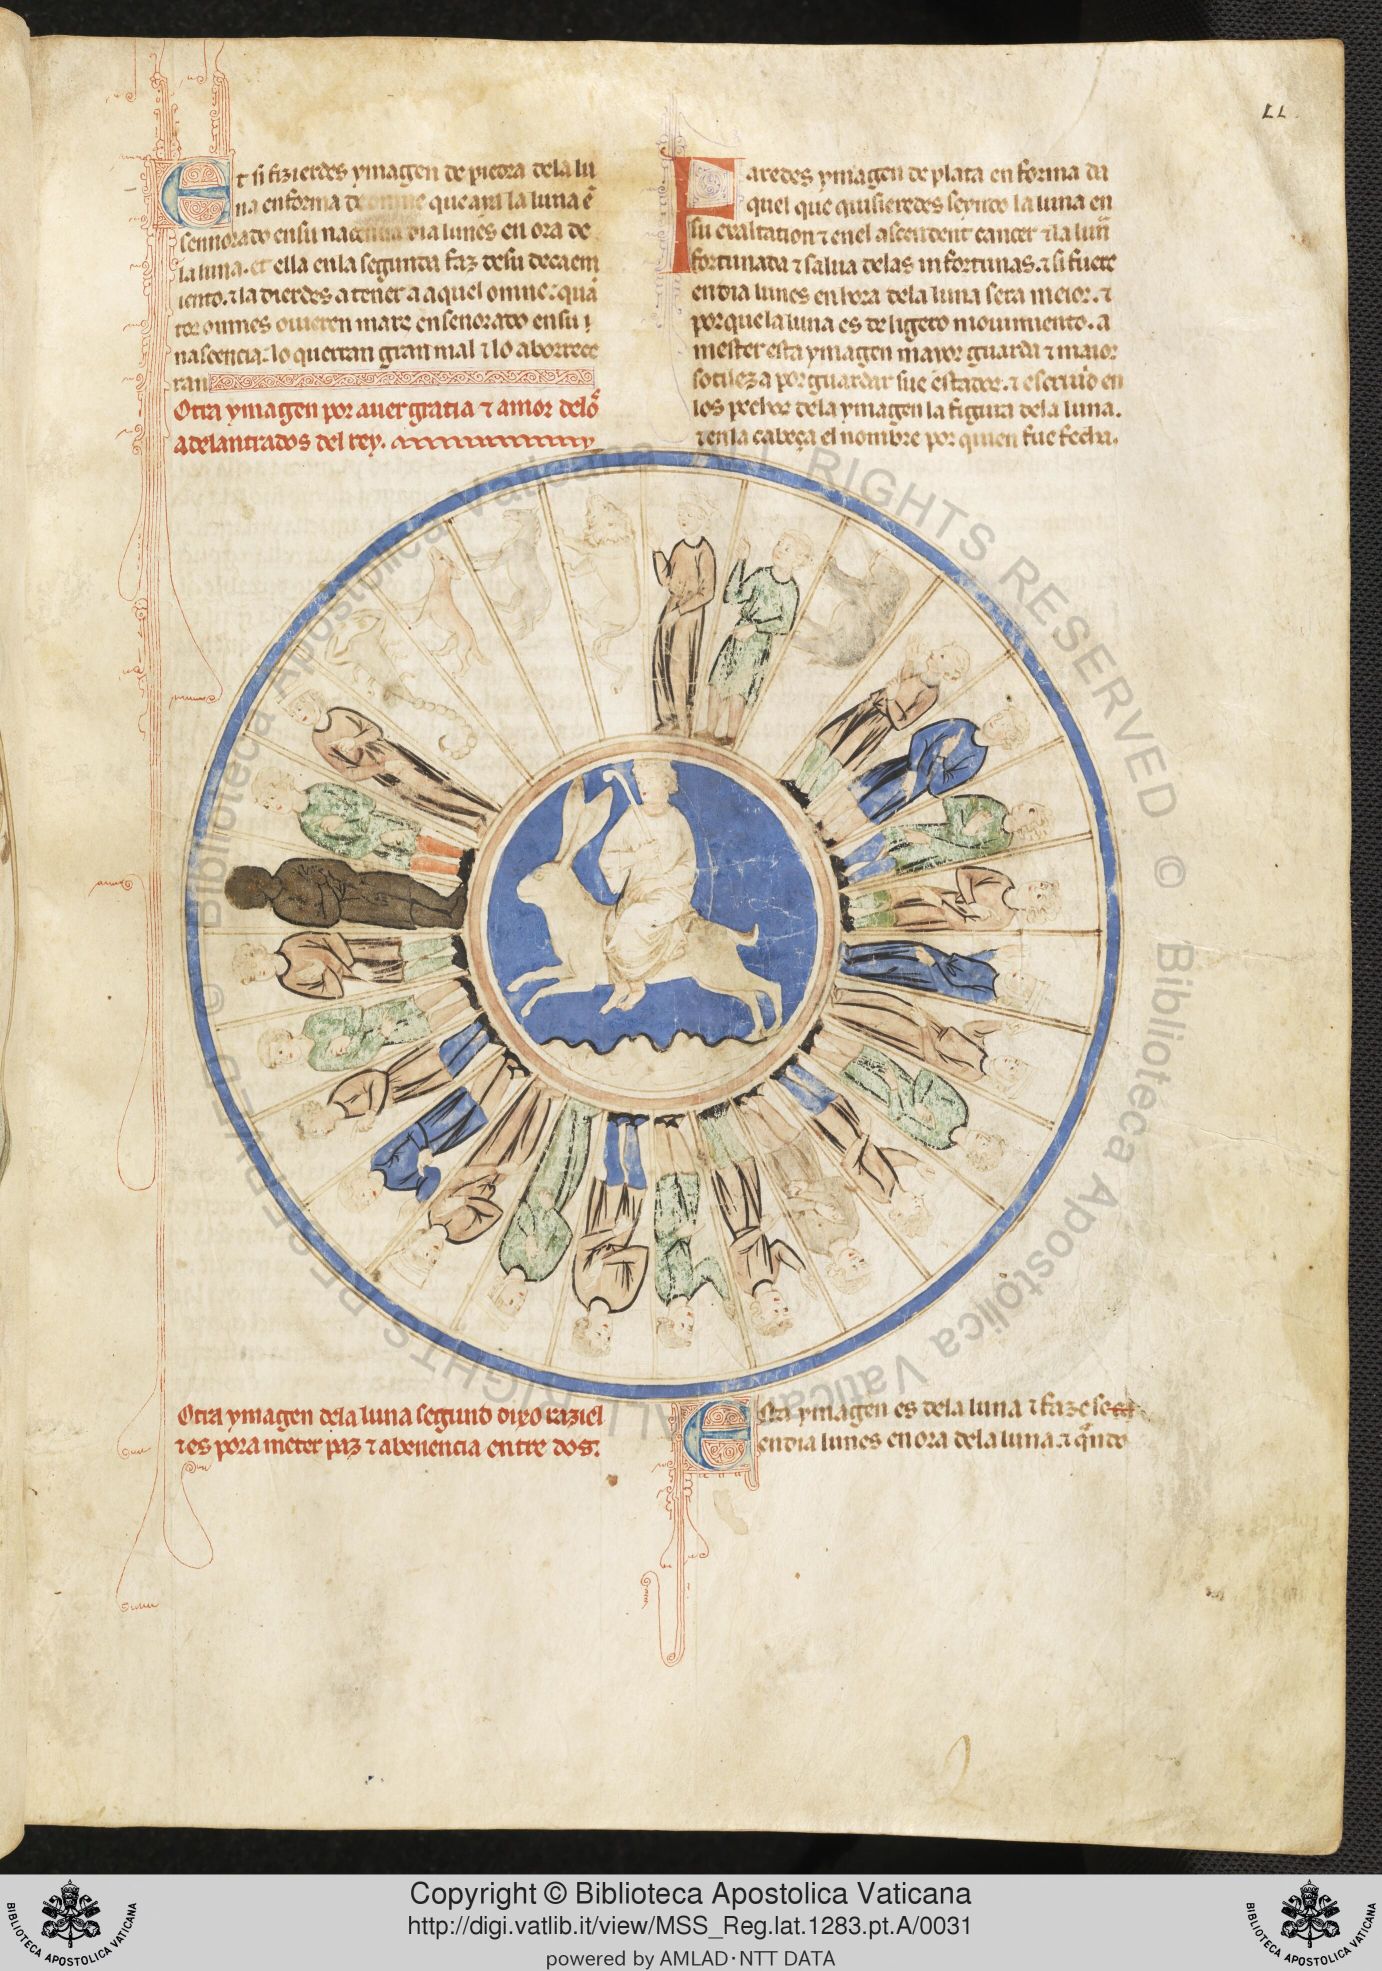 Et si fizierdes ymagen de piedra dela lu
na en forma de omne que aya la luna ē
sennorado en su nacencia dia lunes en ora de
la luna. et ella en la segunda faz de su decaem
iento. ⁊ la dierdes a tener a aquel omne: quā
tos omnes ouieren marz ensenorado en su
nascencia: lo querran gran mal ⁊ lo aborrece
ran
Otra ymagen por auer gratia ⁊ amor delos
adelantrados del rey.
Faredes ymagen de plata en forma da
quel que quisieredes seyendo la luna en
su exaltation ⁊ en el ascendent cancer ⁊ la luna
fortunada ⁊ salua delas infortunas. ⁊ si fuere
en dia lunes en hora dela luna sera meior. ⁊
por que la luna es de ligero mouimiento. a
mester esta ymagen mayor guarda ⁊ maior
sotileza por guardar sue estador. ⁊ escriuid en
los pechos dela ymagen la figura dela luna.
⁊ en la cabeça el nombre por quien fue fecha.
Otra ymagen dela luna segund dixo raziel
⁊ es pora meter paz ⁊ abenencia entre dos.
Esta ymagen es dela luna ⁊ faze se
en dia lunes en ora dela luna. ⁊ quando
Copyright © Biblioteca Apostolica Vaticana
http://digi.vatlib.it/view/MSS_Reg.lat.1283.pt.A/0031
powered by AMLAD·NTT DATA
BIBLIOTECA APOSTOLICA VATICANA
BIBLIOTECA APOSTOLICA VATICANA
© Biblioteca Apostolica Vaticana ALL RIGHTS RESERVED © Biblioteca Apostolica Vaticana ALL RIGHTS RESERVED